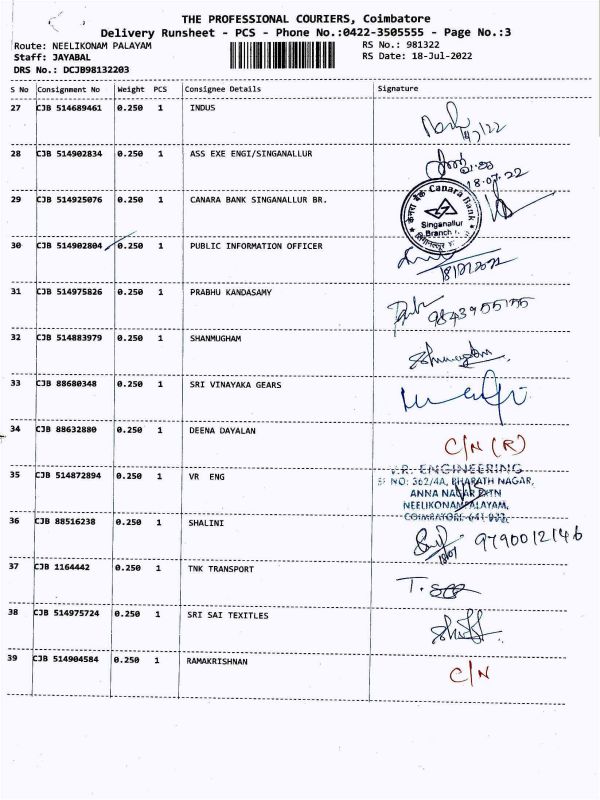 THE PROFESSIONAL COURIERS, Coimbatore
Delivery Runsheet - PCS - Phone No.:0422-3505555 - Page No.:3
Route: NEELIKONAM PALAYAM RS No.: 981322
Staff: JAYABAL RS Date: 18-Jul-2022
DRS No.: DCJB98132203
S No Consignment No Weight PCS Consignee Details Signature
27 CJB 514689461 0.250 1 INDUS
28 CJB 514902834 0.250 1 ASS EXE ENGI/SINGANALLUR
18.07.22
29 CJB 514925076 0.250 1 CANARA BANK SINGANALLUR BR.
केनरा बैंक Canara Bank
Singanallur
Branch
30 CJB 514902804 0.250 1 PUBLIC INFORMATION OFFICER
18/07/2022
31 CJB 514975826 0.250 1 PRABHU KANDASAMY
9843955155
32 CJB 514883979 0.250 1 SHANMUGHAM
33 CJB 88680348 0.250 1 SRI VINAYAKA GEARS
34 CJB 88632880 0.250 1 DEENA DAYALAN C/N (R)
35 CJB 514872894 0.250 1 VR ENG
V.R. ENGINEERING
SF NO: 362/4A, BHARATH NAGAR,
ANNA NAGAR EXTN
NEELIKONAMPALAYAM,
36 CJB 88516238 0.250 1 SHALINI
9790012146
37 CJB 1164442 0.250 1 TNK TRANSPORT
38 CJB 514975724 0.250 1 SRI SAI TEXITLES
39 CJB 514904584 0.250 1 RAMAKRISHNAN C/N